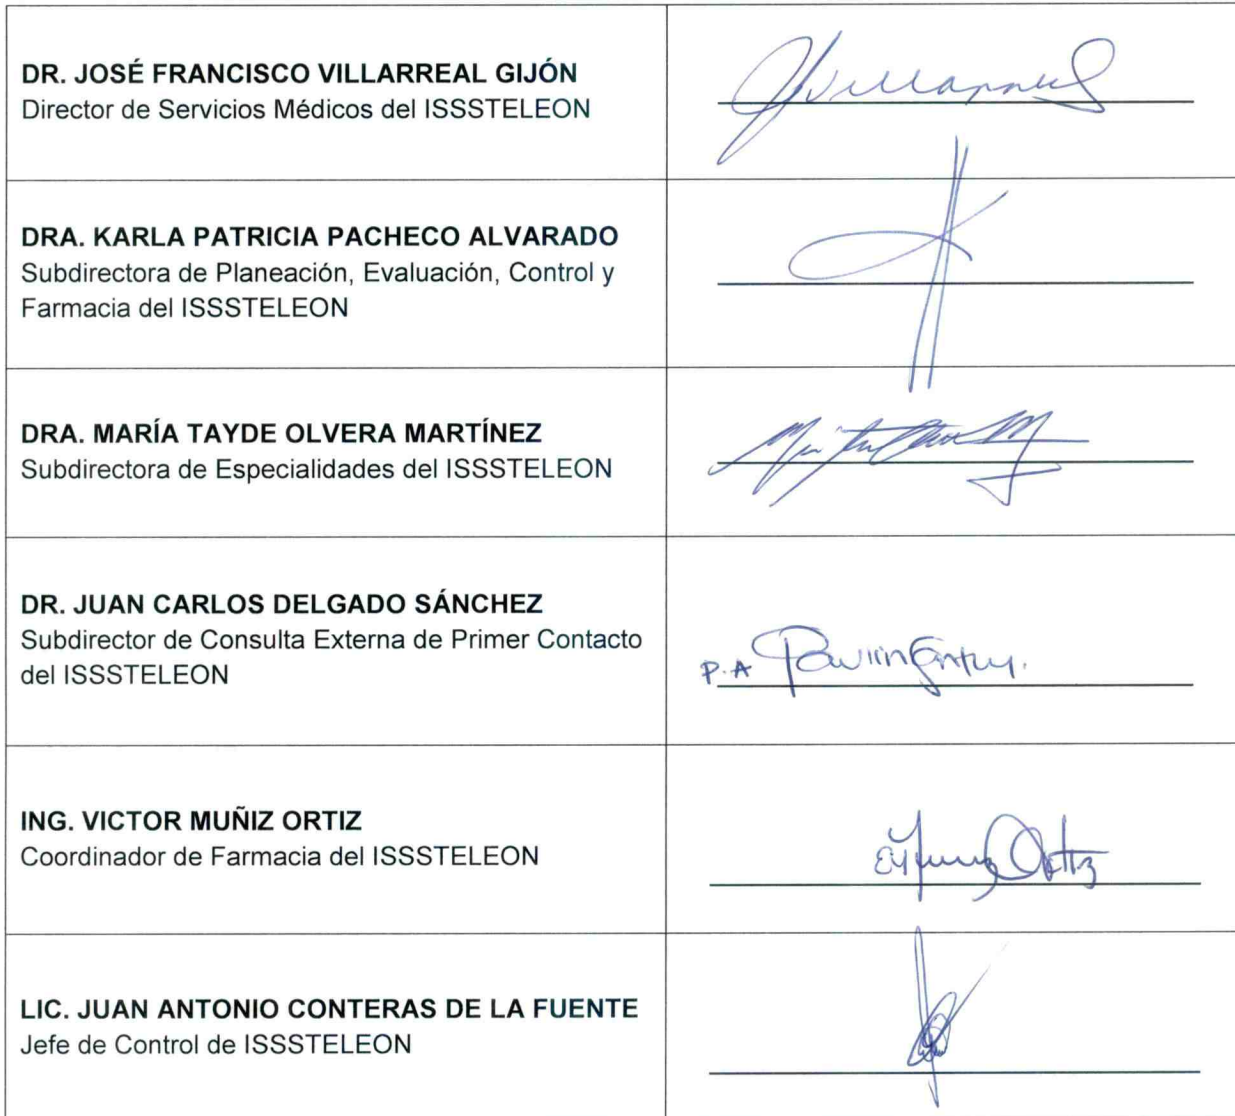 DR. JOSÉ FRANCISCO VILLARREAL GIJÓN
Director de Servicios Médicos del ISSSTELEON
DRA. KARLA PATRICIA PACHECO ALVARADO
Subdirectora de Planeación, Evaluación, Control y
Farmacia del ISSSTELEON
DRA. MARÍA TAYDE OLVERA MARTÍNEZ
Subdirectora de Especialidades del ISSSTELEON
DR. JUAN CARLOS DELGADO SÁNCHEZ
Subdirector de Consulta Externa de Primer Contacto
del ISSSTELEON
P.A
ING. VICTOR MUÑIZ ORTIZ
Coordinador de Farmacia del ISSSTELEON
LIC. JUAN ANTONIO CONTERAS DE LA FUENTE
Jefe de Control de ISSSTELEON